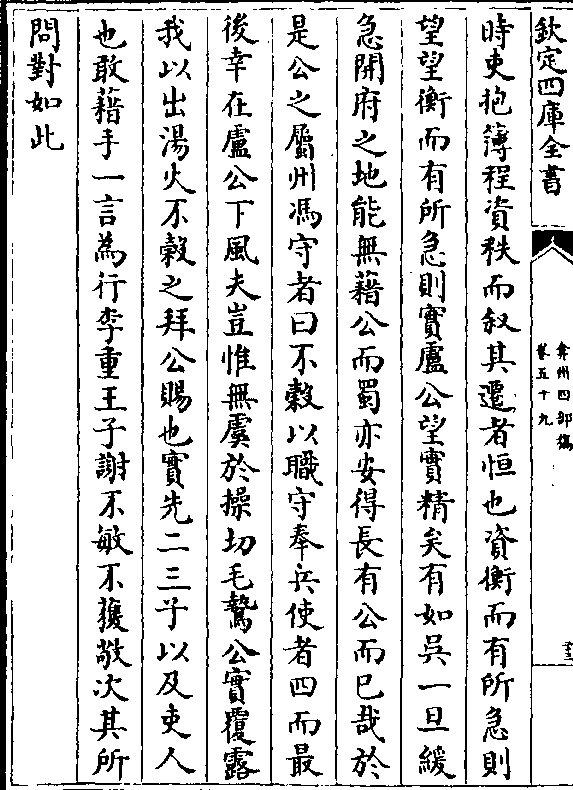 欽定四庫全書
弇州四部稿
卷五十九
時吏抱簿程資秩而叙其遷者恒也資衡而有所急則
望望衡而有所急則實盧公望實精矣有如吳一旦緩
急開府之地能無藉公而蜀亦安得長有公而已哉於
是公之屬州馮守者曰不穀以職守奉兵使者四而最
後幸在盧公下風夫豈惟無虞於操切毛鷙公實覆露
我以出湯火不穀之拜公賜也實先二三子以及吏人
也敢藉手一言為行李重王子謝不敏不獲敬次其所
問對如此